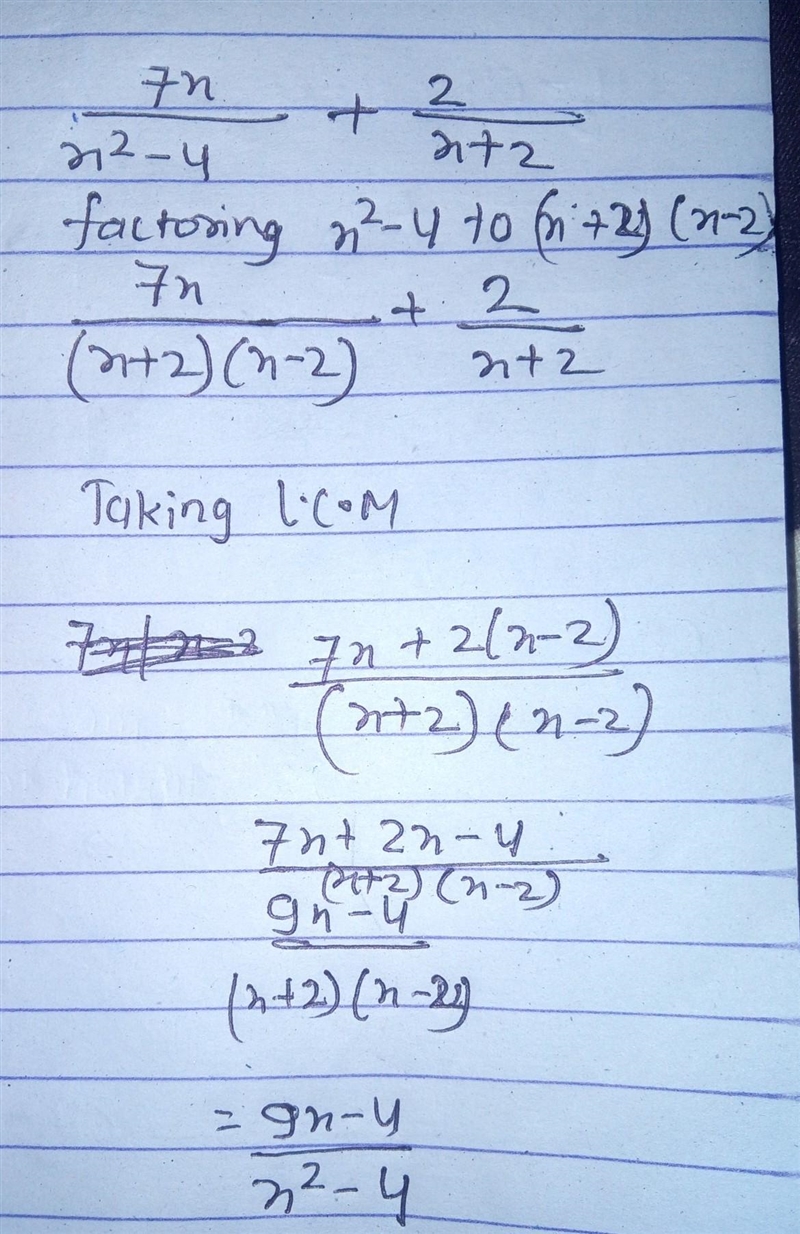 7x/(x²-4) + 2/(x+2)
factoring x²-4 to (x+2) (x-2)
7x/((x+2)(x-2)) + 2/(x+2)
Taking L.C.M
(7x + 2(x-2))/((x+2)(x-2))
(7x + 2x - 4)/((x+2)(x-2))
(9x-4)/((x+2)(x-2))
= (9x-4)/(x²-4)